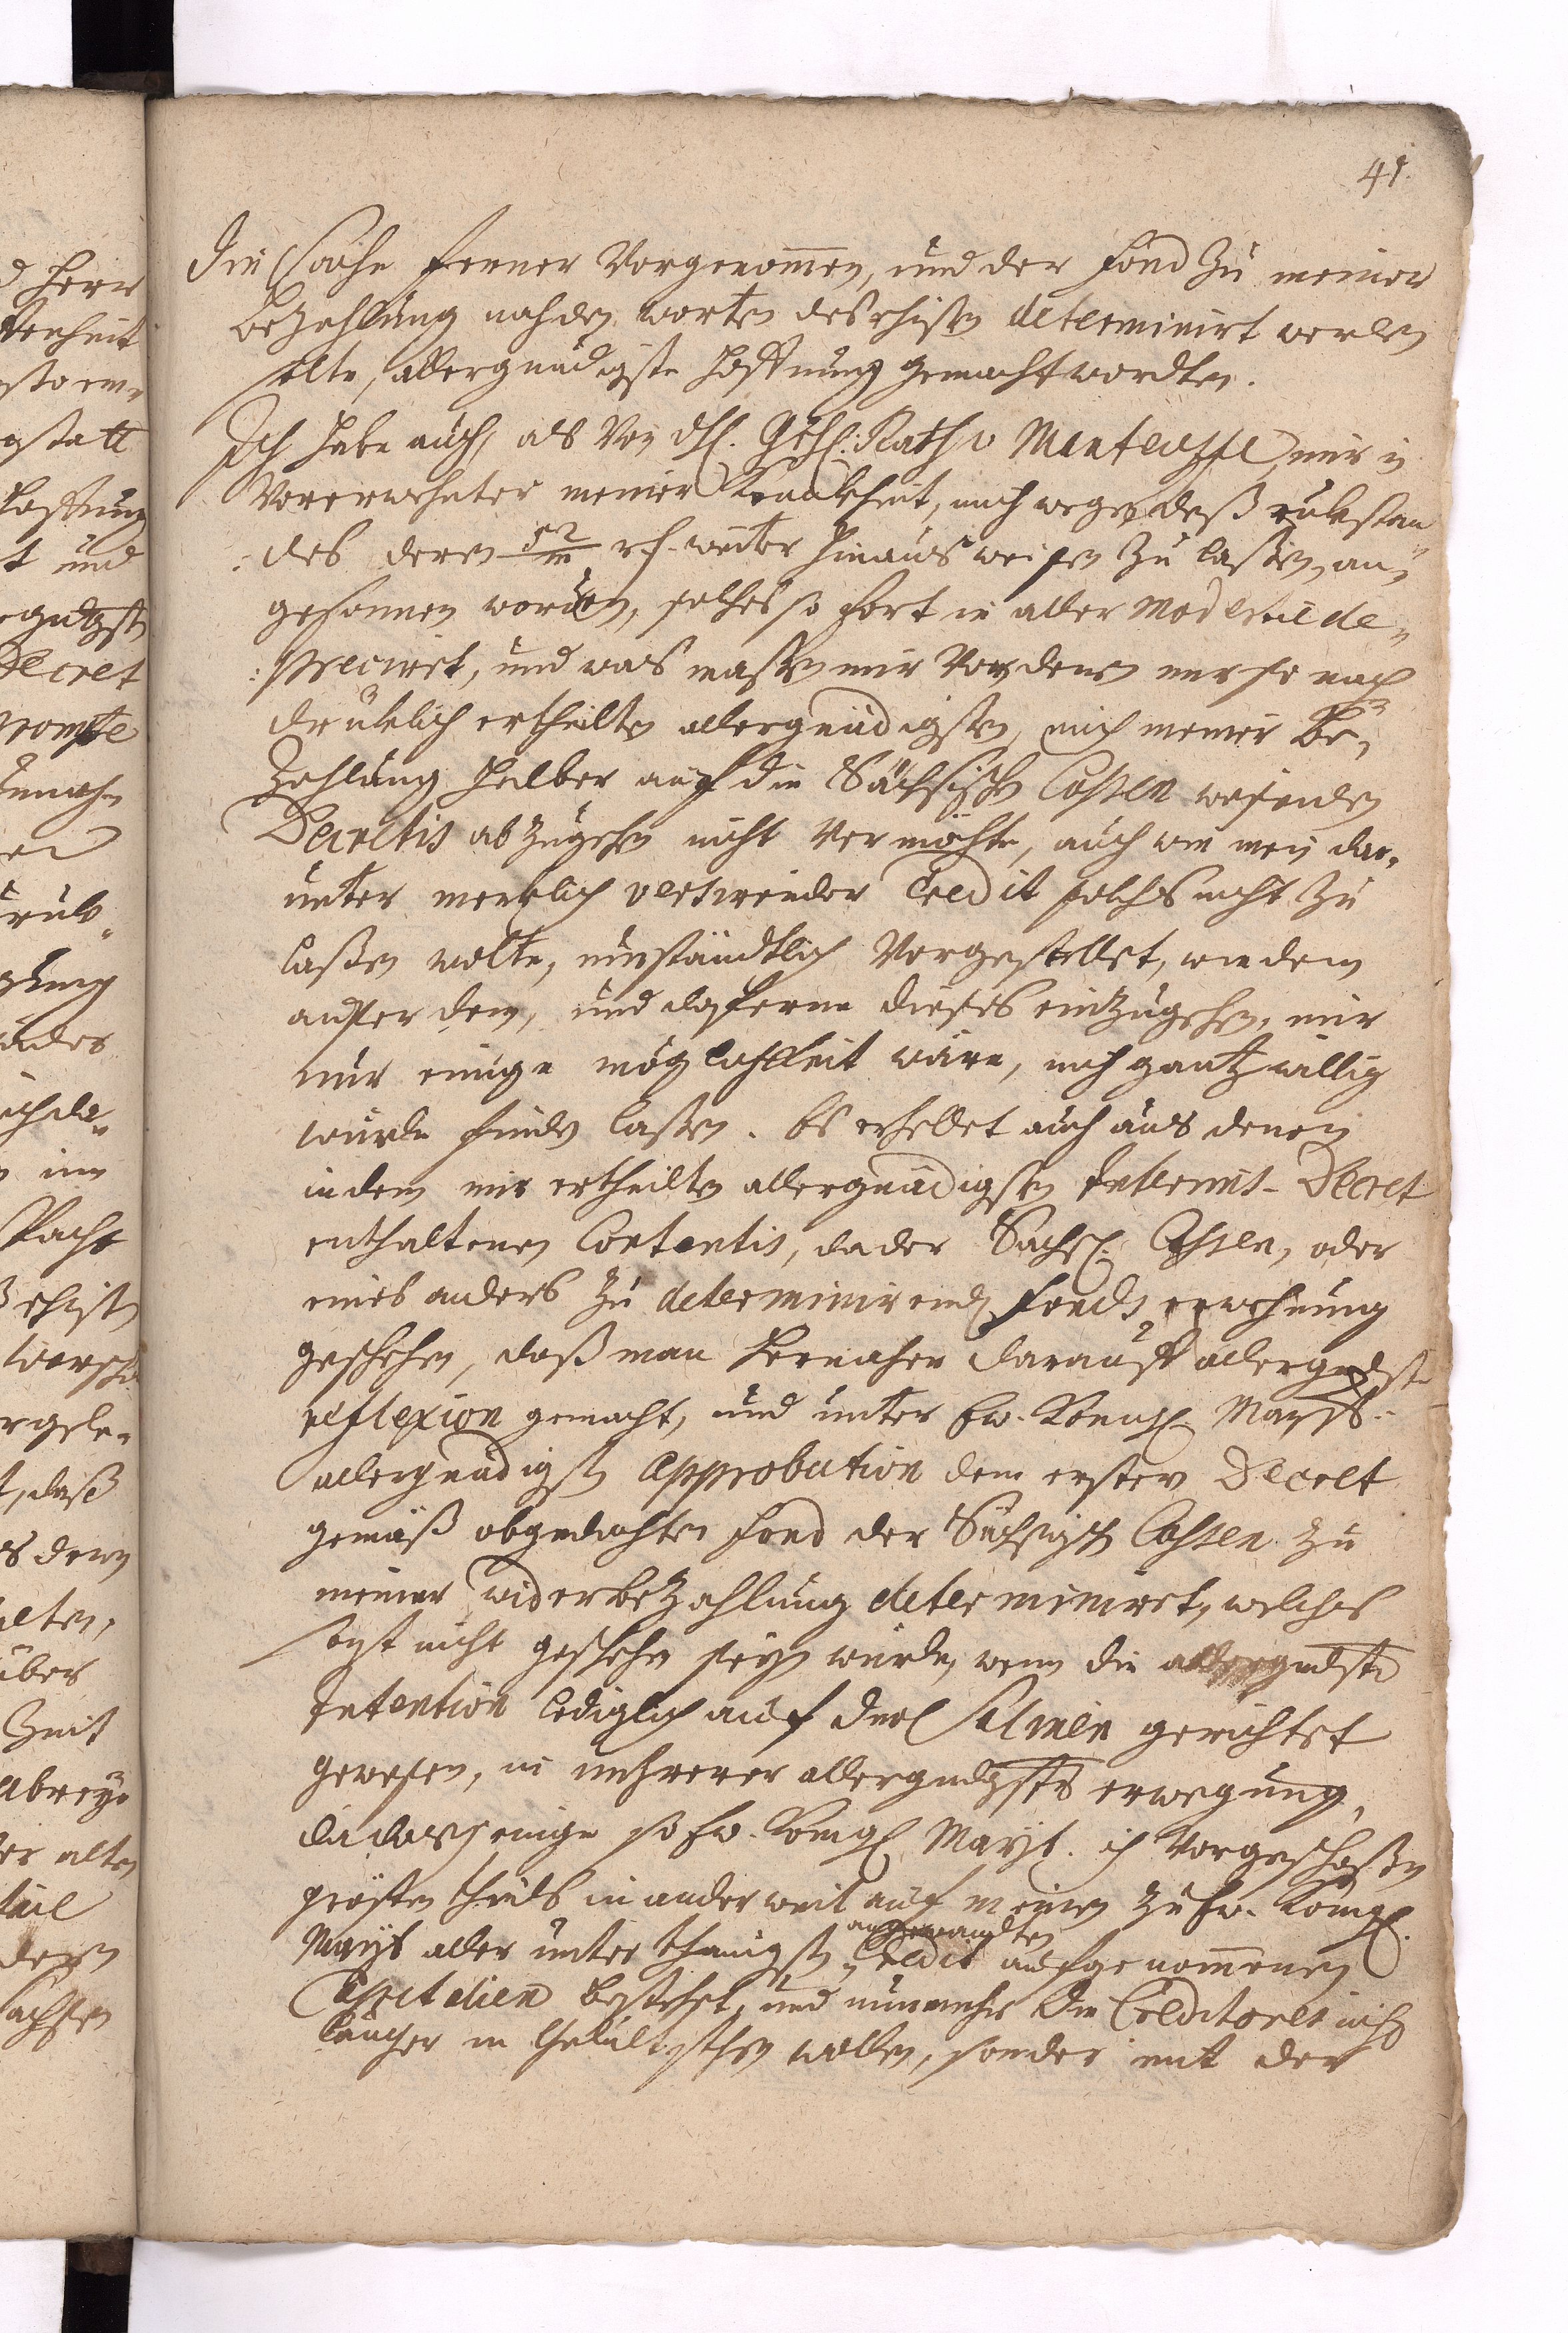 41.
die Sache ferner Vorgenom̃en, und der Fond zu meiner
bezahlung nach den worten deschisten determinirt werden
solte, allergnädigste Hoffnung gemacht wordten.
Ich habe auch, als Von dH. GehH. Rath v Manteuffel, mir in
Vorerwehnter meiner Kranckheit, mich wegen deß rukstan
des deren 52/m rf. weiter hinaus weisen zu laßen, an„
gesonnen worden, solches so fort in aller Modestie de„
:preciret, und was maßen mir Von denen mir so nach
drüklich ertheilten allergnädigsten, mich meiner Be„
zahlung halber auf die Sächsische Cassen weisenden
Decretis abzugehen nicht Vermöchte, auch wie mein dar„
unter merklich versirender Credit solches nicht zu
laßen wolte, umständtlich Vorgestellet, wie dem
auser dem, und dafferne dieses einzugehen, mir
nur einige möglichkeit wäre, mich gantz willig
würde finden laßen. Es erhellet auch aus denen
in dem mir ertheilten allergnädigsten Interims-Decret
enthaltenen Contentis, da der Sächs. Cassen, oder
eines anders zu determinirend Fonds erwehnung
geschehen, daß man hernacher darauff allergndste
reflexion gemacht, und unter Ew. Königl. Mayst.
allergnädigsten Approbation dem ersten Decret
gemäß obgedachten Fond der Sächsisch Cassen zu
meiner widerbezahlung determiniret, welches
sonst nicht geschehen seyn würde, wenn die allergndste
Intention lediglich auf die Salinen gerichtet
gewesen, in mehrerer allergndgster erwegung,
da dasjenige so Ew. Königl Mayt. ich Vorgeschoßen
grösten theils in anderweit auf meinen zu Ew. Königl.
angewandten
Mayt aller unterthänigst Credit aufgenom̃enen
Capitalien bestehet, und nunmehr die Creditores nicht
länger in Gedult stehen wollen, sonder mit der